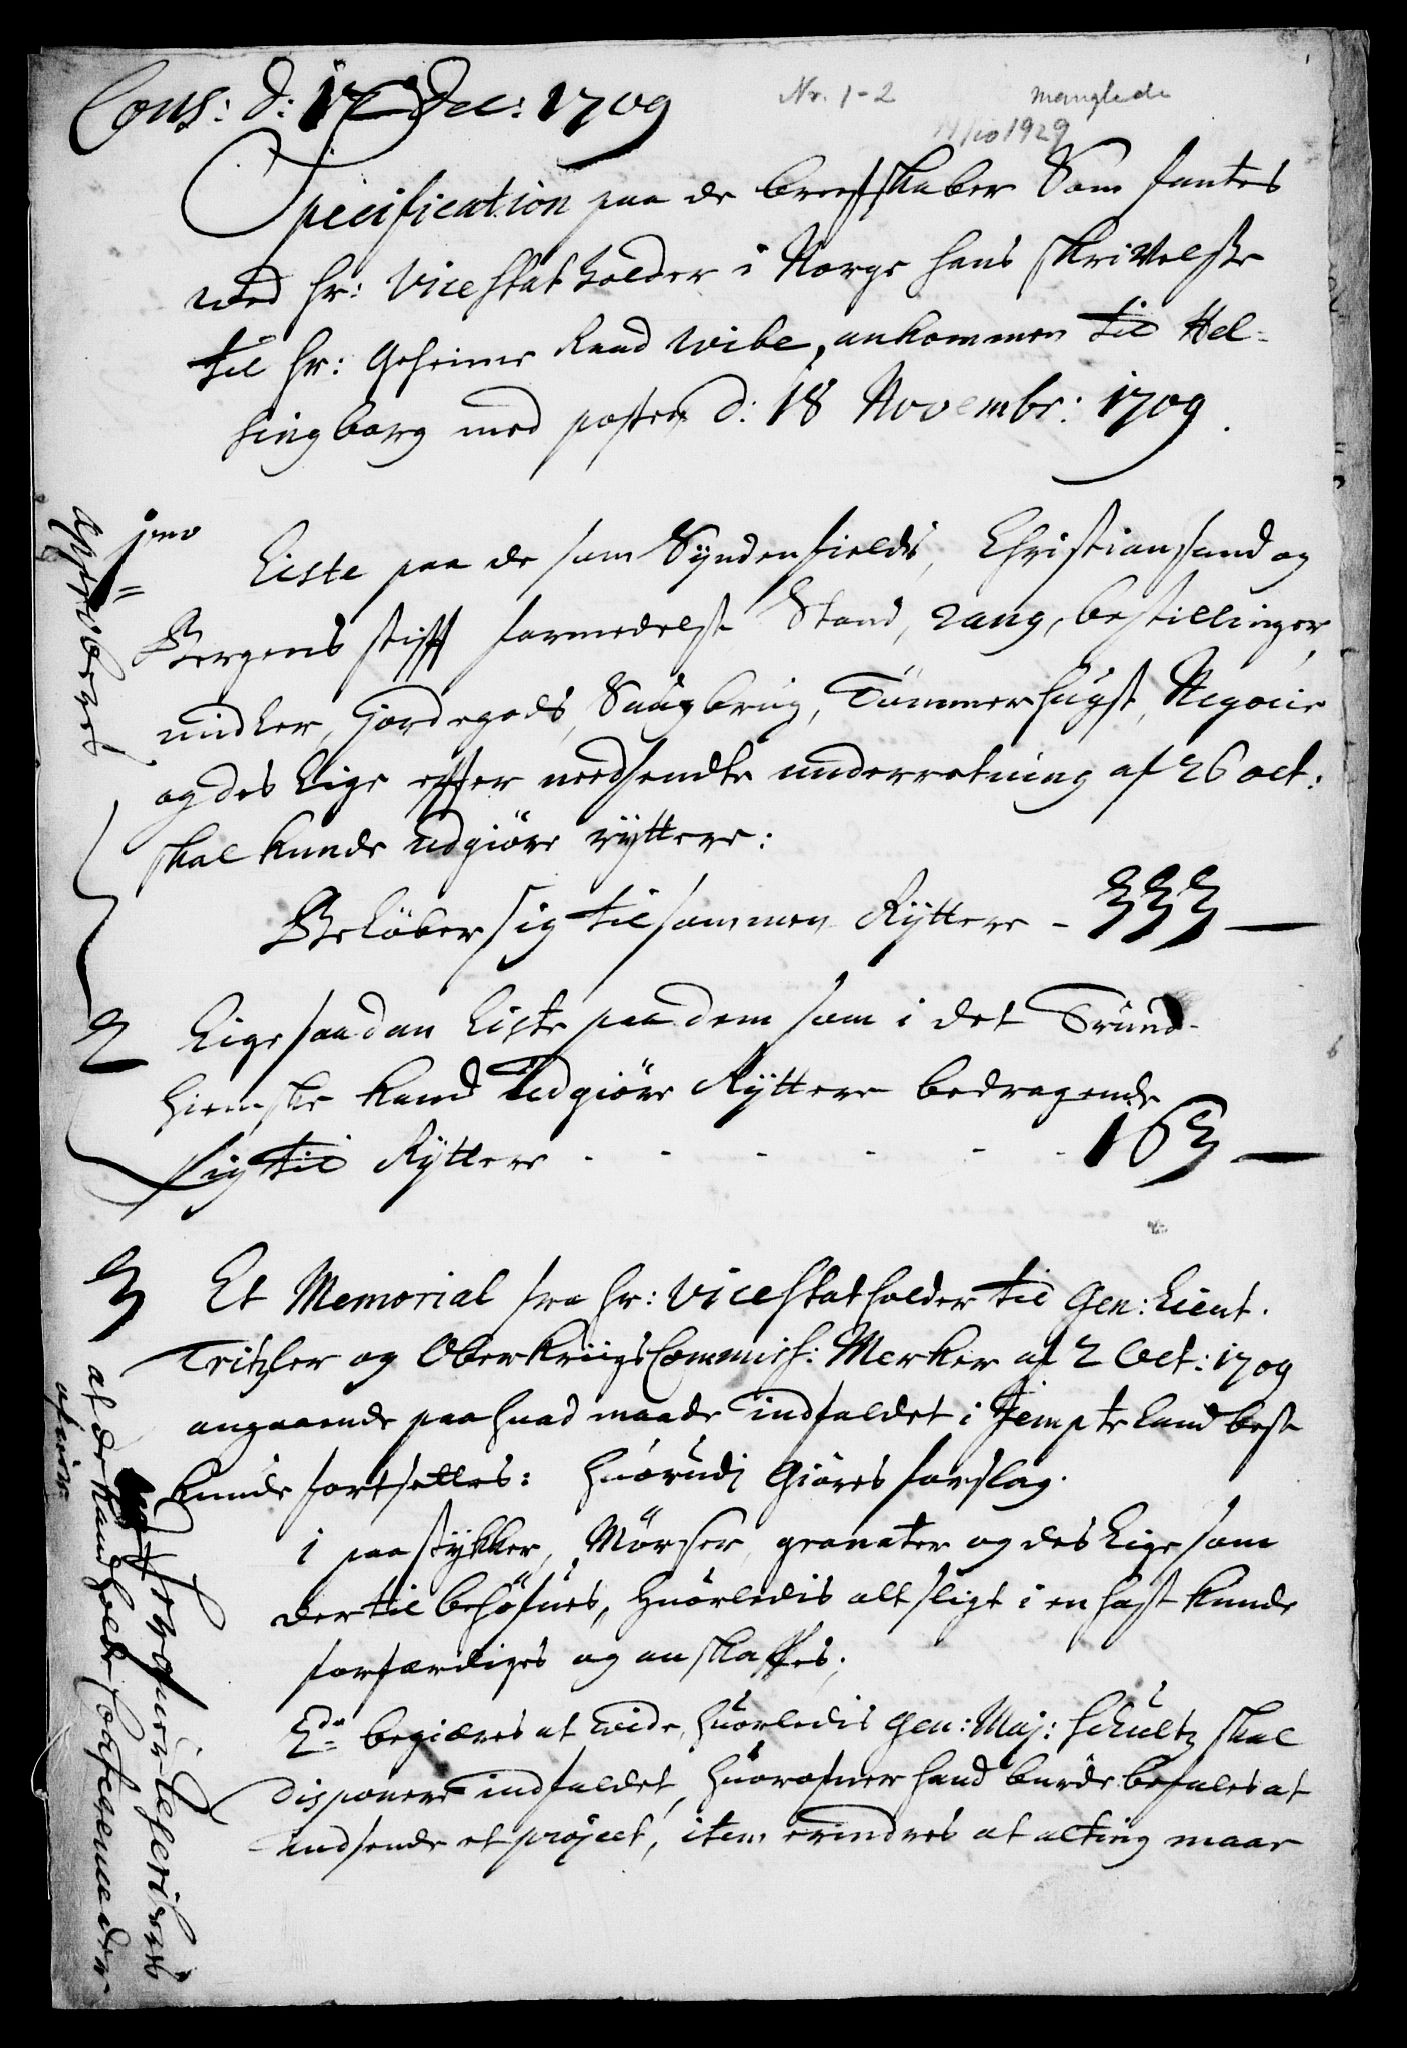 Cons: d: 17 Dec: 1709
Nr. 1-2 manglede
11/10 1929
Specification paa de breefskaber Som fantes
ved hr: Vice Stat holder i Norge hans skrivelse
til hr: Geheime Raad Wibe, ankommen til Hel-
singborg med posten d: 18 Novembr: 1709.
jmo Liste paa de som Syndenfields, Christiansand og
Bergens stifft formedelst Stand, rang, bestillinger,
midler, Jordegods, Saugbrug, Tømmerhugst, Negocie
og des lige efter needsendte underretning af 26 oct:
skal kunde udgiøre ryttere:
Beløber sig tilsammen Ryttere - 333 —
2 Lige saadan Liste paa dem som i det Trund-
hiemske kand udgiøre Ryttere bedragende
sig til Ryttere - - - - - 163 —
3 Et Memorial fra hr: Vice Statholder til Gen: Lieut.
Tritzler og Ober Kriigs Commiss: Merker af 2 Oct: 1709
angaaende paa huad maade indfaldet i Jempteland best
kunde fortsettes: huorudi Giøres forslag.
1 paa stykker, Mørser, granater og des lige som
der til behøfues, huorledis alt sligt i en hast kunde
forfærdiges og anskaffes;
2do begiæres at vide, huorledis Gen: Maj: Schultz skal
disponere indfaldet, huorofuer hand burde befales at
indsende et project, item erindres at alting maae
af de kand holde Conference der
ofuer